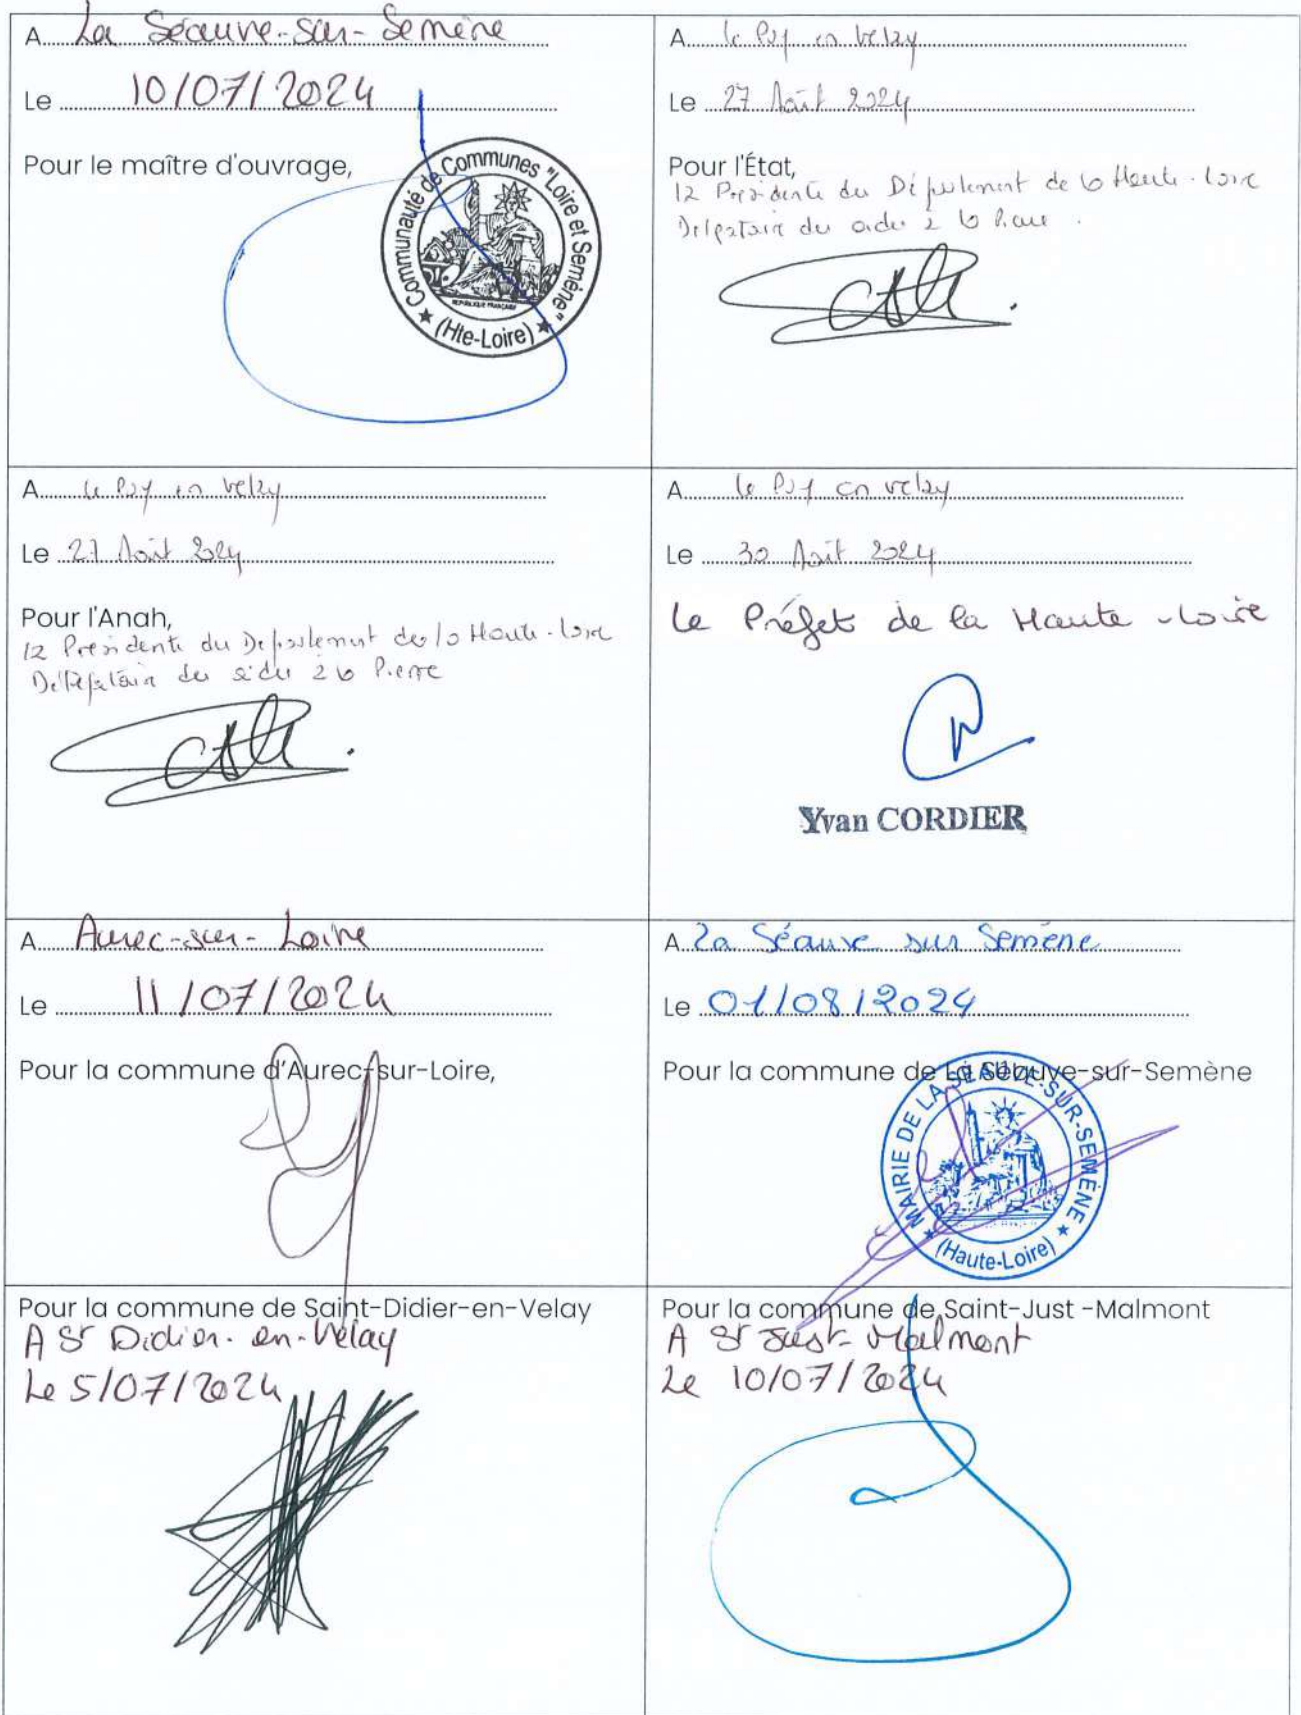 A La Séauve-sur-Semène
Le 10/07/2024
Pour le maître d'ouvrage,
Communauté de Communes "Loire et Semène"
REPUBLIQUE FRANÇAISE
(Hte-Loire)
A le Puy en velay
Le 27 Août 2024
Pour l'État,
la Présidente du Département de la Haute-Loire
Délégataire des aides à la Pierre.
A le Puy en velay
Le 27 Août 2024
Pour l'Anah,
la Présidente du Département de la Haute-Loire
Délégataire des aides à la Pierre
A le Puy en velay
Le 30 Août 2024
Le Préfet de la Haute-Loire
Yvan CORDIER
A Aurec-sur-Loire
Le 11/07/2024
Pour la commune d'Aurec-sur-Loire,
A La Séauve sur Semène
Le 01/08/2024
Pour la commune de La Séauve-sur-Semène
MAIRIE DE LA SÉAUVE-SUR-SEMÈNE
(Haute-Loire)
Pour la commune de Saint-Didier-en-Velay
A St Didier-en-Velay
Le 5/07/2024
Pour la commune de Saint-Just -Malmont
A St Just-Malmont
Le 10/07/2024